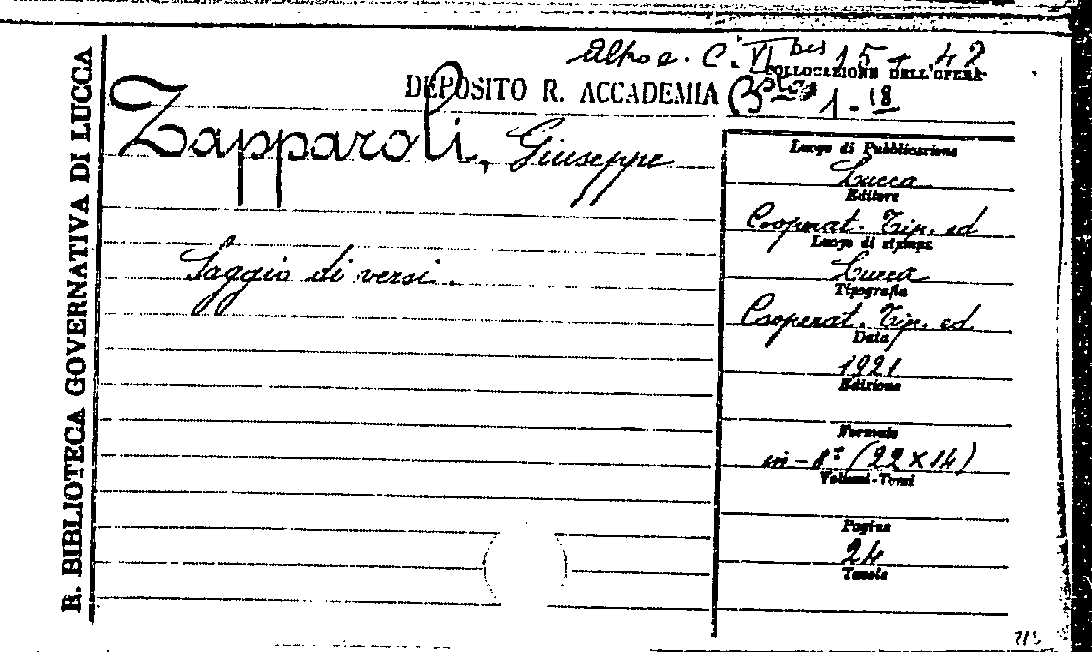 Altro e. C. VI bis 15 - 42
COLLOCAZIONE DELL'OPERA
DEPOSITO R. ACCADEMIA
1 - 18
R. BIBLIOTECA GOVERNATIVA DI LUCCA
Zapparoli, Giuseppe
Saggio di versi.
Luogo di Pubblicazione
Lucca
Editore
Cooperat. Tip. ed
Luogo di stampa
Lucca
Tipografia
Cooperat. Tip. ed
Data
1921
Edizione
Formato
in-8° (22 x 14)
Volumi-Tomi
Pagine
24
Tavole